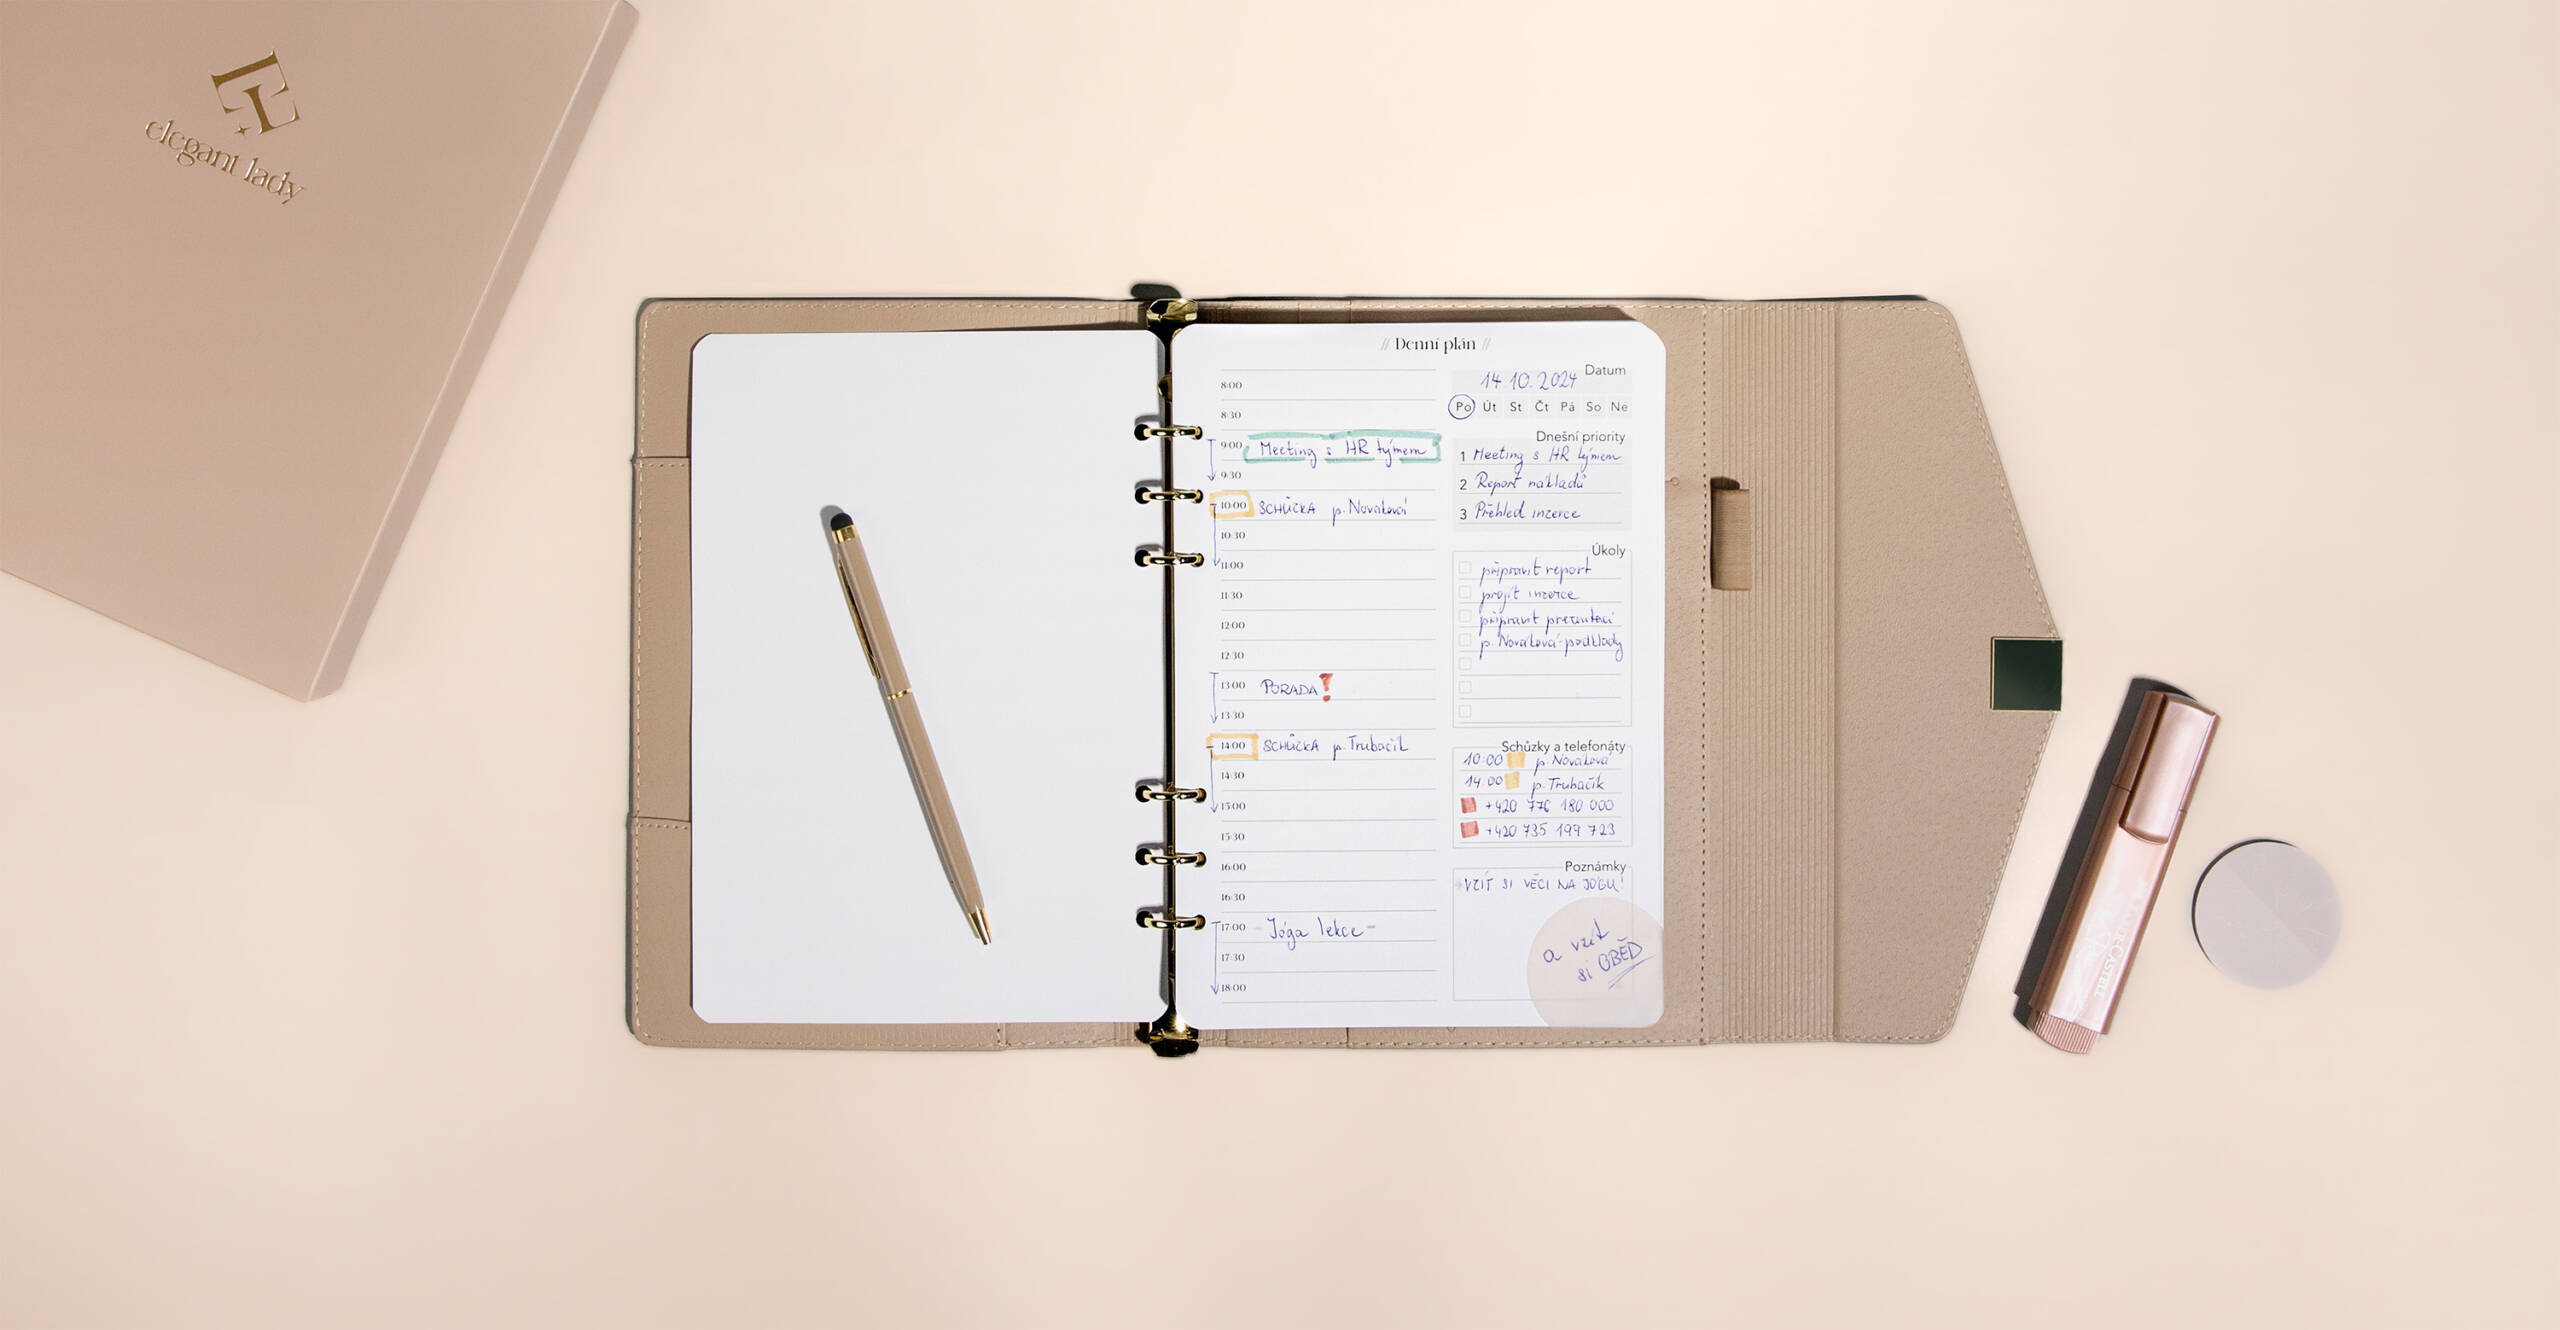 EL
elegant lady
// Denní plán //
8:00
8:30
9:00 Meeting s HR týmem
9:30
10:00 SCHŮZKA p. Nováková
10:30
11:00
11:30
12:00
12:30
13:00 PORADA!
13:30
14:00 SCHŮZKA p. Trubačík
14:30
15:00
15:30
16:00
16:30
17:00 - Jóga lekce -
17:30
18:00
Datum
14. 10. 2024
Po Út St Čt Pá So Ne
Dnešní priority
1 Meeting s HR týmem
2 Report nákladů
3 Přehled inzerce
Úkoly
připravit report
projít inzerce
připravit prezentaci
p. Nováková - podklady
Schůzky a telefonáty
10:00 p. Nováková
14:00 p. Trubačík
+420 776 180 000
+420 735 199 723
Poznámky
VZÍT SI VĚCI NA JÓGU!
a vzít
si OBĚD